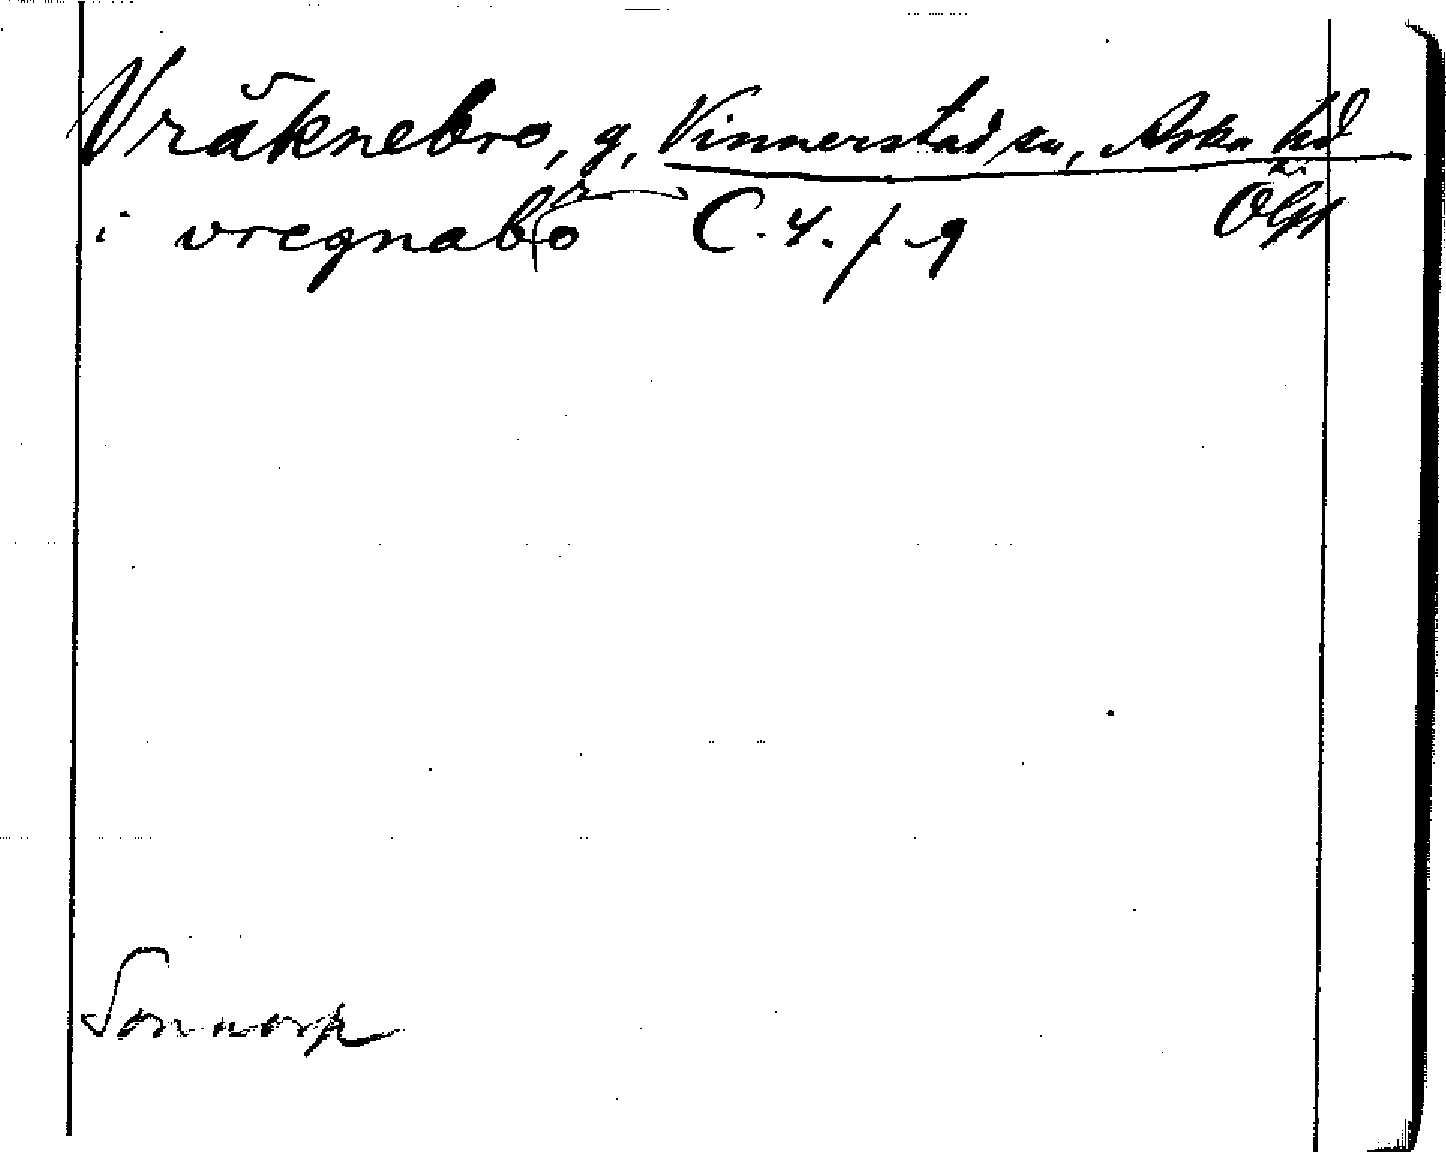 Vräknebro, g, Vinnerstad sn, Aska hd
Ögl
i vregnabro C. 4. / 9
Sonnorp